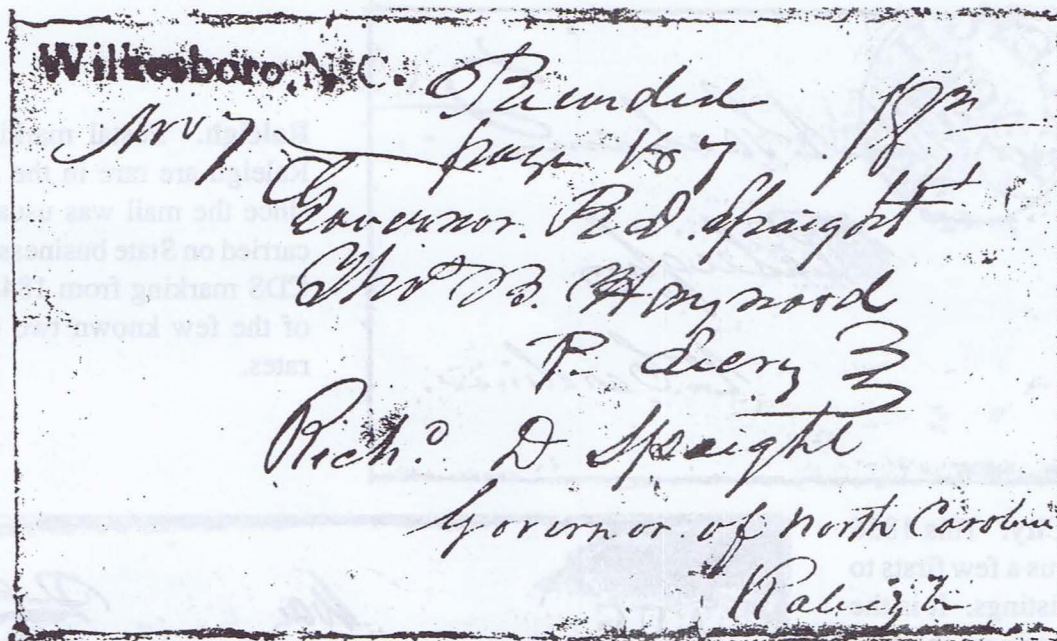 Wilkesboro, N.C.
Recorded
page 187
Governor R D Spaight
Tho B. Haywood
P. Secry
Rich.d D Spaight
Governor of North Carolina
Raleigh